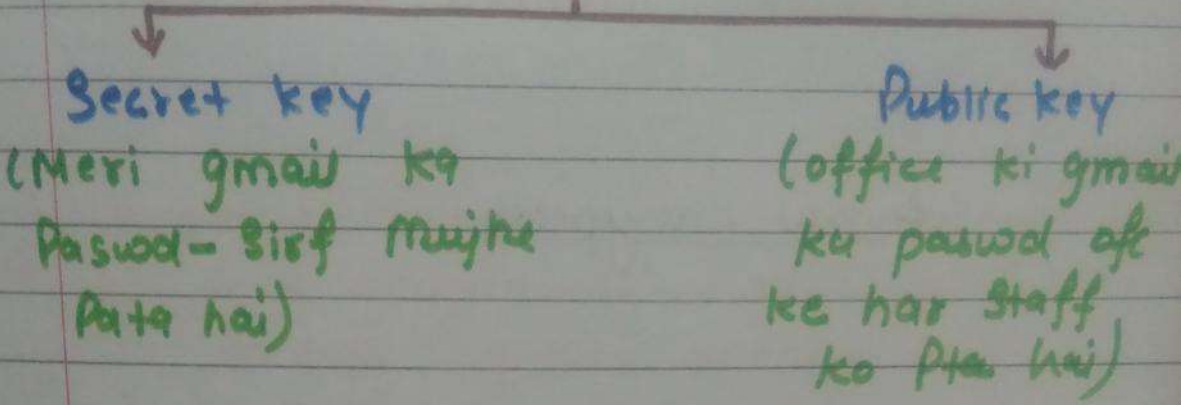 Secret key
(Meri gmail ka
Paswod - Sirf Mujhe
Pata hai)
Public key
(office ki gmail
ka paswod ofc
ke har Staff
ko Pta hai)